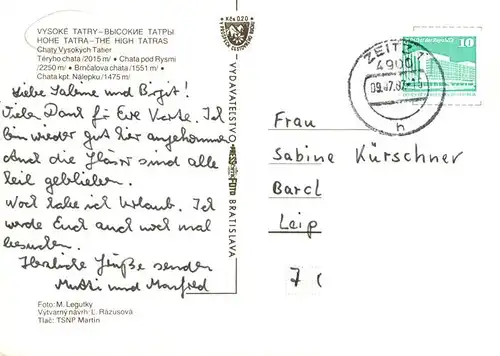 VYSOKÉ TATRY–ВЫСОКИЕ ТАТРЫ
HOHE TATRA–THE HIGH TATRAS
Chaty Vysokých Tatier
Téryho chata /2015 m/ • Chata pod Rysmi
/2250 m/ • Brnčalova chata /1551 m/ •
Chata kpt. Nálepku/1475 m/
Liebe Sabine und Birgit!
Vielen Dank für Eure Karte. Ich
bin wieder gut hier angekommen.
Auch die Gläser sind alle
heil geblieben.
Noch habe ich Urlaub. Ich
werde Euch auch noch mal
besuchen.
Herzliche Grüße senden
Mutti und Manfred
Foto: M. Legutky
Výtvarný návrh: L. Rázusová
Tlač: TSNP Martin
Kčs 0,20
VYDAVATEĽSTVO
BRATISLAVA
ZEITZ 1
4900
10
Frau
Sabine Kürschner
Barcl
Leip
7